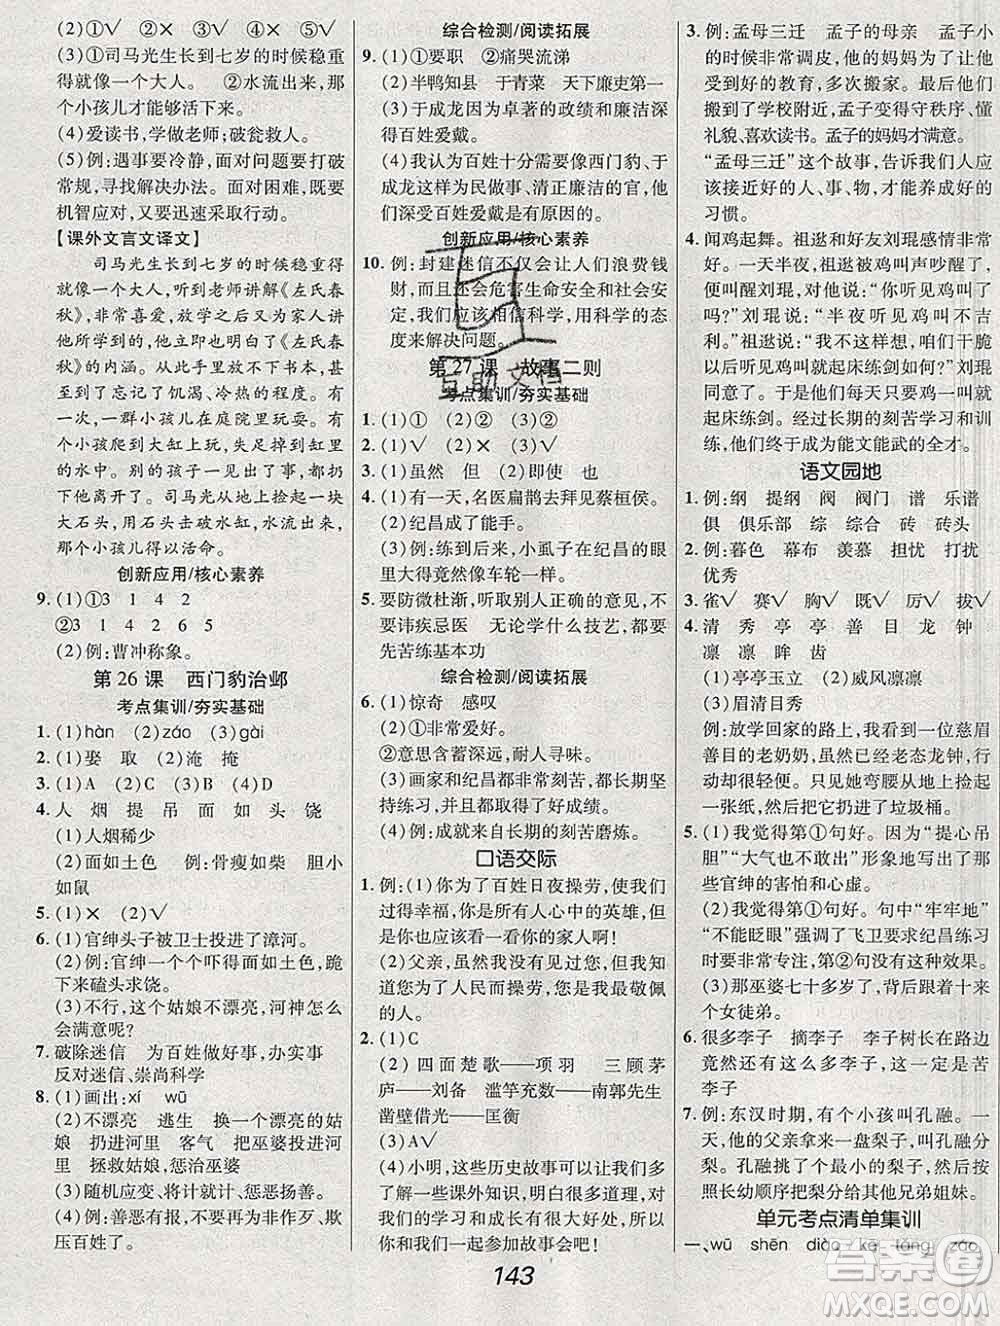 (2)①✓ ②✓ ③✕ ④✓ ⑤✓
(3)①司马光生长到七岁的时候稳重
得就像一个大人。 ②水流出来了,
小孩儿才能够活下来。
(4)爱读书,学做老师;破瓮救人。
(5)例:遇事要冷静。面对问题打破
常规,寻找解决办法。面对困难,既要
机智应对,又要迅速采取行动。
【课外文言文译文】
司马光生长到七岁的时候稳重得
就像一个大人,听到老师讲解《左氏春
秋》,非常喜爱,放学之后又为家人讲
他所学到的,因此他也了解了《左氏春
秋》的大概。从此手里放不下书本,甚
至到了忘记了饥渴、冷热的程度。有
一次,一群小孩儿在庭院里玩,一个
小孩爬到大缸上玩,失足掉到缸中
的水中。别的孩子一见出了事,都吓
跑了。司马光从地上捡起一块
大石头,用石头击破水缸,水流出来,
水中的小孩儿得以活命。
创新应用/核心素养
9. (1)①3 1 4 2
②3 1 4 2 6 5
(2)例:曹冲称象。
第 26 课 西门豹治邺
考点集训/夯实基础
1. (1)hàn (2)záo (3)gài
2. (1)娶 取 (2)淹 掩
3. (1)A (2)C (3)B (4)D
4. 人 烟 提 吊 面 如 头 饶
(1)人烟稀少
(2)面如土色 例:骨瘦如柴 胆小
如鼠
5. (1)✕ (2)✓
6. (1)官绅头子被卫士投进了漳河。
(2)例:官绅一个个吓得面如土色,跪
下来磕头求饶。
(3)不行,这个姑娘不漂亮,河神怎么
会满意呢?
7. 破除迷信 为百姓做好事、办实事
反对迷信、崇尚科学
8. (1)画出:xí wū
(2)不漂亮 逃生 换一个漂亮的姑
娘 扔进河里 客气 把巫婆投进河
里 拯救姑娘,惩治巫婆
(3)随机应变、将计就计、惩恶扬善。
(4)例:善恶有报,不要为非作歹、欺
压百姓了。
综合检测/阅读拓展
9. (1)①要职 ②痛哭流涕
(2)半鸭知县 于青菜 天下廉吏第一
(3)于成龙因为卓著的政绩和廉洁而
得百姓爱戴。
(4)我认为百姓十分需要像西门豹、于
成龙这样为民做事、清正廉洁的官,他
们深受百姓爱戴是有原因的。
创新应用/核心素养
10. 例:封建迷信不仅会让人们浪费钱
财,而且还会危害生命安全和社会安
定,我们应该相信科学,用科学的态
度来解决问题。
第 27 课 故事二则
考点集训/夯实基础
1. (1)① (2)② (3)②
2. (1)✓ (2)✕ (3)✓
3. (1)虽然 但 (2)即使 也
4. (1)有一天,名医扁鹊去拜见蔡桓侯。
(2)纪昌成了能手。
(3)例:练到后来,小虱子在纪昌的眼
里大得竟然像车轮一样。
5. 要防微杜渐,听取别人的意见,不
要讳疾忌医 无论学什么技艺,都要
先苦练基本功
综合检测/阅读拓展
6. (1)惊奇 感叹
(2)①非常爱好。
②意思含蓄深远,耐人寻味。
(3)画家和纪昌都非常刻苦,都能长期
坚持练习,并且都取得了好成绩。
(4)例:成就来自长期的刻苦磨炼。
口语交际
1. 例:(1)你为了百姓日夜操劳,让人们
过得幸福,你是所有人心中的英雄,但
是你也应该看一看你的家人啊!
(2)父亲,虽然我没见过你,但我知
道您为了人民而操劳,您是我最敬佩
的人。
2. (1)C
(2)四面楚歌——项羽 三顾茅
庐——刘备 滥竽充数——南郭先生
凿壁借光——匡衡
(3)A✓
(4)小明,这些历史故事可以让我们
了解一些课外知识,明白更多道理,对
我们的学习和成长有很大帮助,所以
和我们一起参加故事会吧!
3. 例:孟母三迁 孟子的母亲 孟子小
的时候非常调皮,他的妈妈为了让他
受到好的教育,多次搬家。当他们最后
搬到了学校附近,孟子变得守秩序、懂
礼貌、喜欢读书。孟子的妈妈才满意。
“孟母三迁”这个故事,告诉我们人应
该接近好的人、事、物,才能养成好的
习惯。
4. 闻鸡起舞。祖逖和好友刘琨感情非常
好。一天半夜,祖逖被鸡叫声吵醒了,
便叫醒刘琨,对他说:“你听见鸡叫了
吗?”刘琨说:“半夜听见鸡叫不吉
利。”祖逖说:“我偏不这样想,咱们以
后听见鸡叫就起床练剑如何?”刘琨
同意了。于是他们每天听见鸡叫就
起床练剑。经过长期的刻苦学习和训
练,他们终于成为能文能武的全才。
语文园地
1. 例:纲 提纲 阀 阀门 谱 乐谱
俱 俱乐部 综 综合 砖 砖头
2. 例:暮色 幕布 羡慕 担忧 打扰
优秀
3. 雀✓ 赛✓ 胸✓ 既✓ 厉✓ 拔✓
4. 清 秀 亭 亭 善 目 龙 钟
凛 凛 眸 齿
(1)亭亭玉立 (2)威风凛凛
(3)眉清目秀
例:放学回家的路上,我看到一位慈眉
善目的老奶奶,虽然已经老态龙钟,但
行动却很轻便。只见她弯腰从地上捡起
一张纸,然后把它扔进了垃圾桶。
5. (1)我觉得第①句好。因为“提心吊
胆”“大气也不敢出”形象地写出了
那些官绅的害怕和心虚。
(2)我觉得第①句好。句中“牢牢地”
“不能眨眼”强调了飞卫要求纪昌练习
时要非常专注,第②句没有这种效果。
(3)那巫婆七十多岁了,背后跟着十来个
女徒弟。
6. 很多李子 摘李子 李子树长在路边
竟然还有这么多李子,这一定是
苦李子
7. 例:东汉时期,有个小孩叫孔融。一
天,他的父亲拿来一盘梨子,叫孔融分
梨。孔融挑了个最小的梨子,其余的梨
按照长幼顺序分给其他兄弟姐妹。
单元考点清单集训
一、wū shēn diào kē táng záo
143
互助文档
答案圈
MXQE.COM